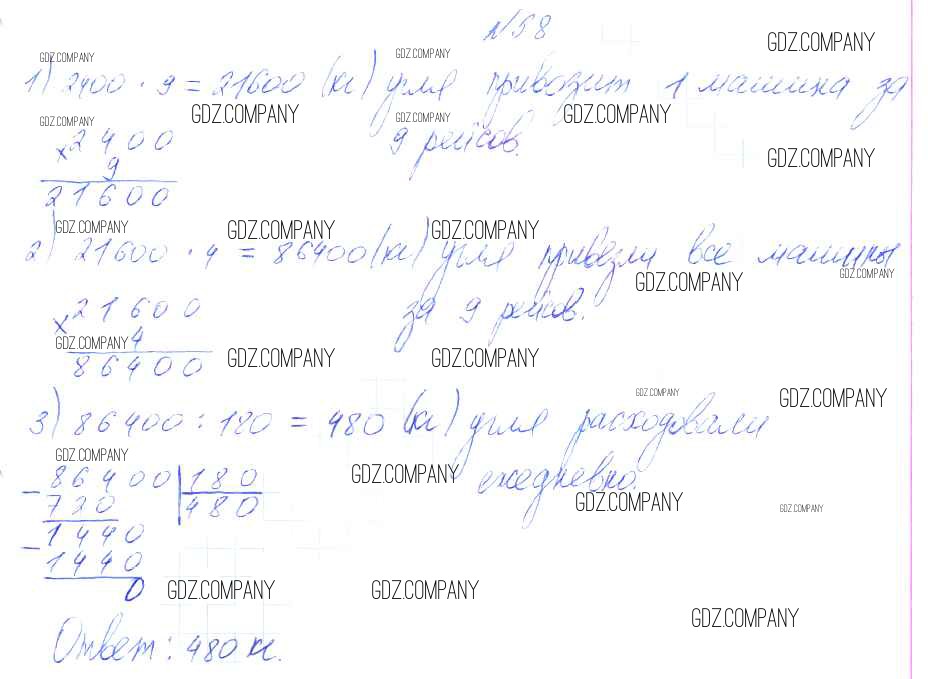 №58
GDZ.COMPANY
GDZ.COMPANY GDZ.COMPANY
1) 2400 · 9 = 21600 (кг) угля привозит 1 машина за
GDZ.COMPANY GDZ.COMPANY GDZ.COMPANY GDZ.COMPANY
9 рейсов.
× 2400
9
GDZ.COMPANY
21600
GDZ.COMPANY GDZ.COMPANY GDZ.COMPANY
2) 21600 · 4 = 86400 (кг) угля привезли все машины
GDZ.COMPANY GDZ.COMPANY
за 9 рейсов.
× 21600
GDZ.COMPANY 4
86400
GDZ.COMPANY GDZ.COMPANY
GDZ.COMPANY GDZ.COMPANY
3) 86400 : 180 = 480 (кг) угля расходовали
GDZ.COMPANY
ежедневно.
GDZ.COMPANY
- 86400 | 180
720 | 480
GDZ.COMPANY GDZ.COMPANY
- 1440
1440
0
GDZ.COMPANY GDZ.COMPANY
GDZ.COMPANY
Ответ: 480 кг.